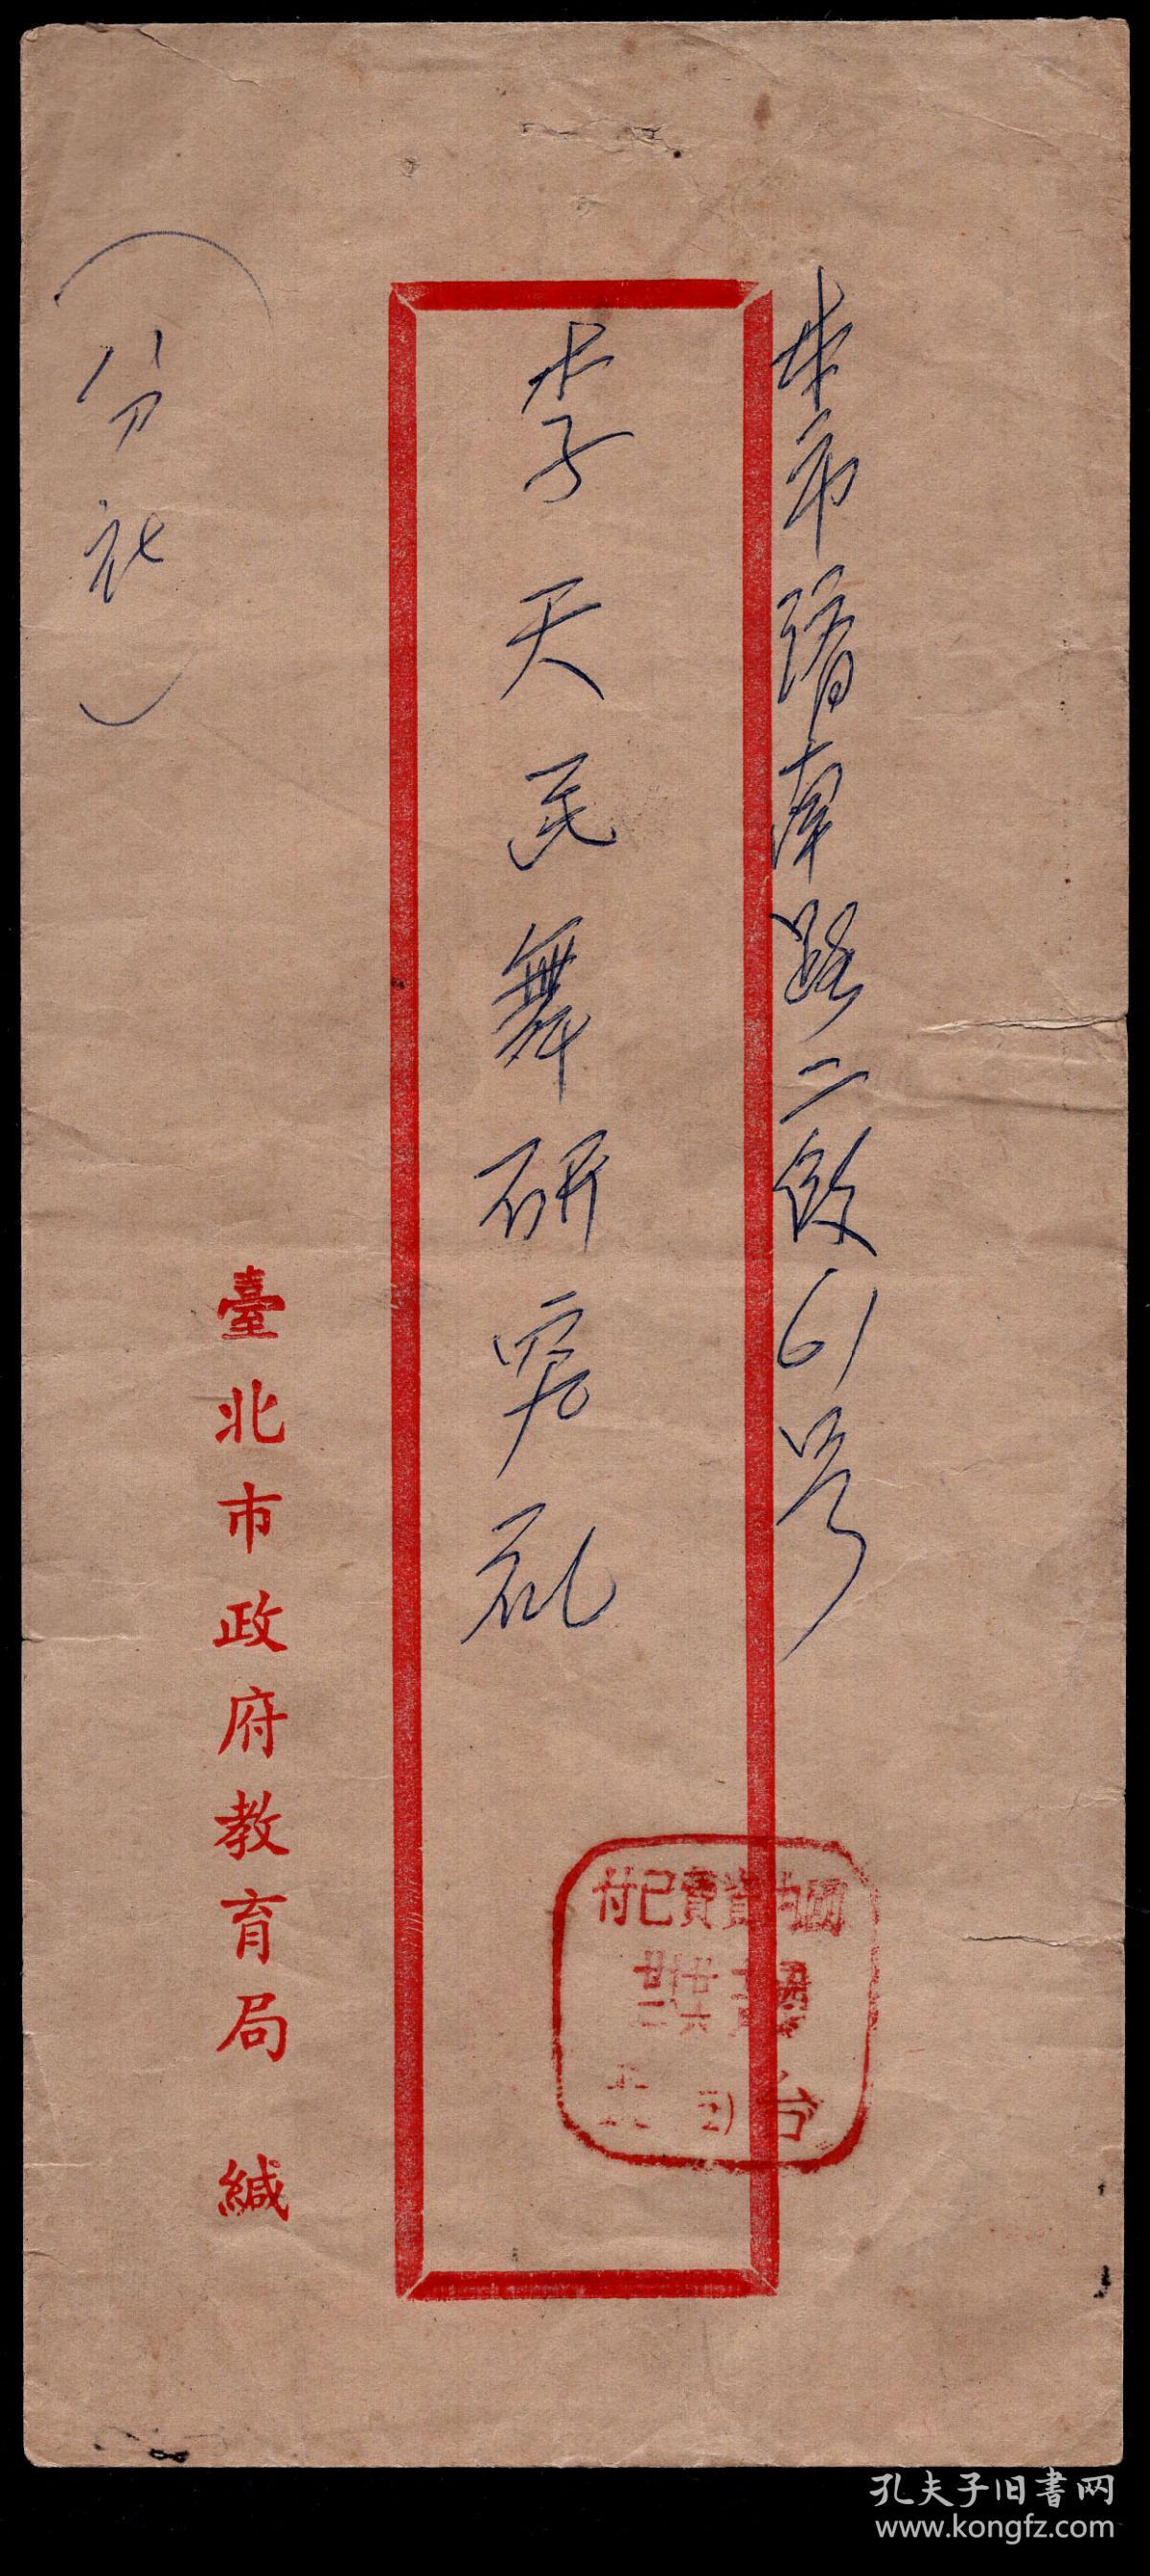 本市濟南路二段61號
李天民舞研究社
(分社)
臺北市政府教育局 緘
國內資費已付
台
孔夫子旧书网
www.kongfz.com